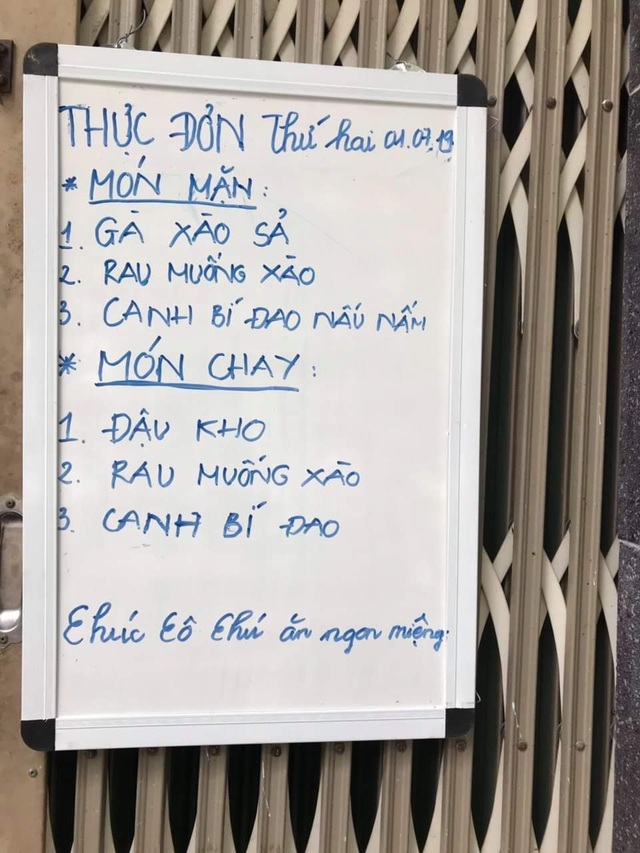 THỰC ĐƠN Thứ hai 01.07.19
* MÓN MẶN:
1. GÀ XÀO SẢ
2. RAU MUỐNG XÀO
3. CANH BÍ ĐAO NẤU NẤM
* MÓN CHAY:
1. ĐẬU KHO
2. RAU MUỐNG XÀO
3. CANH BÍ ĐAO
Chúc Cô Chú ăn ngon miệng.